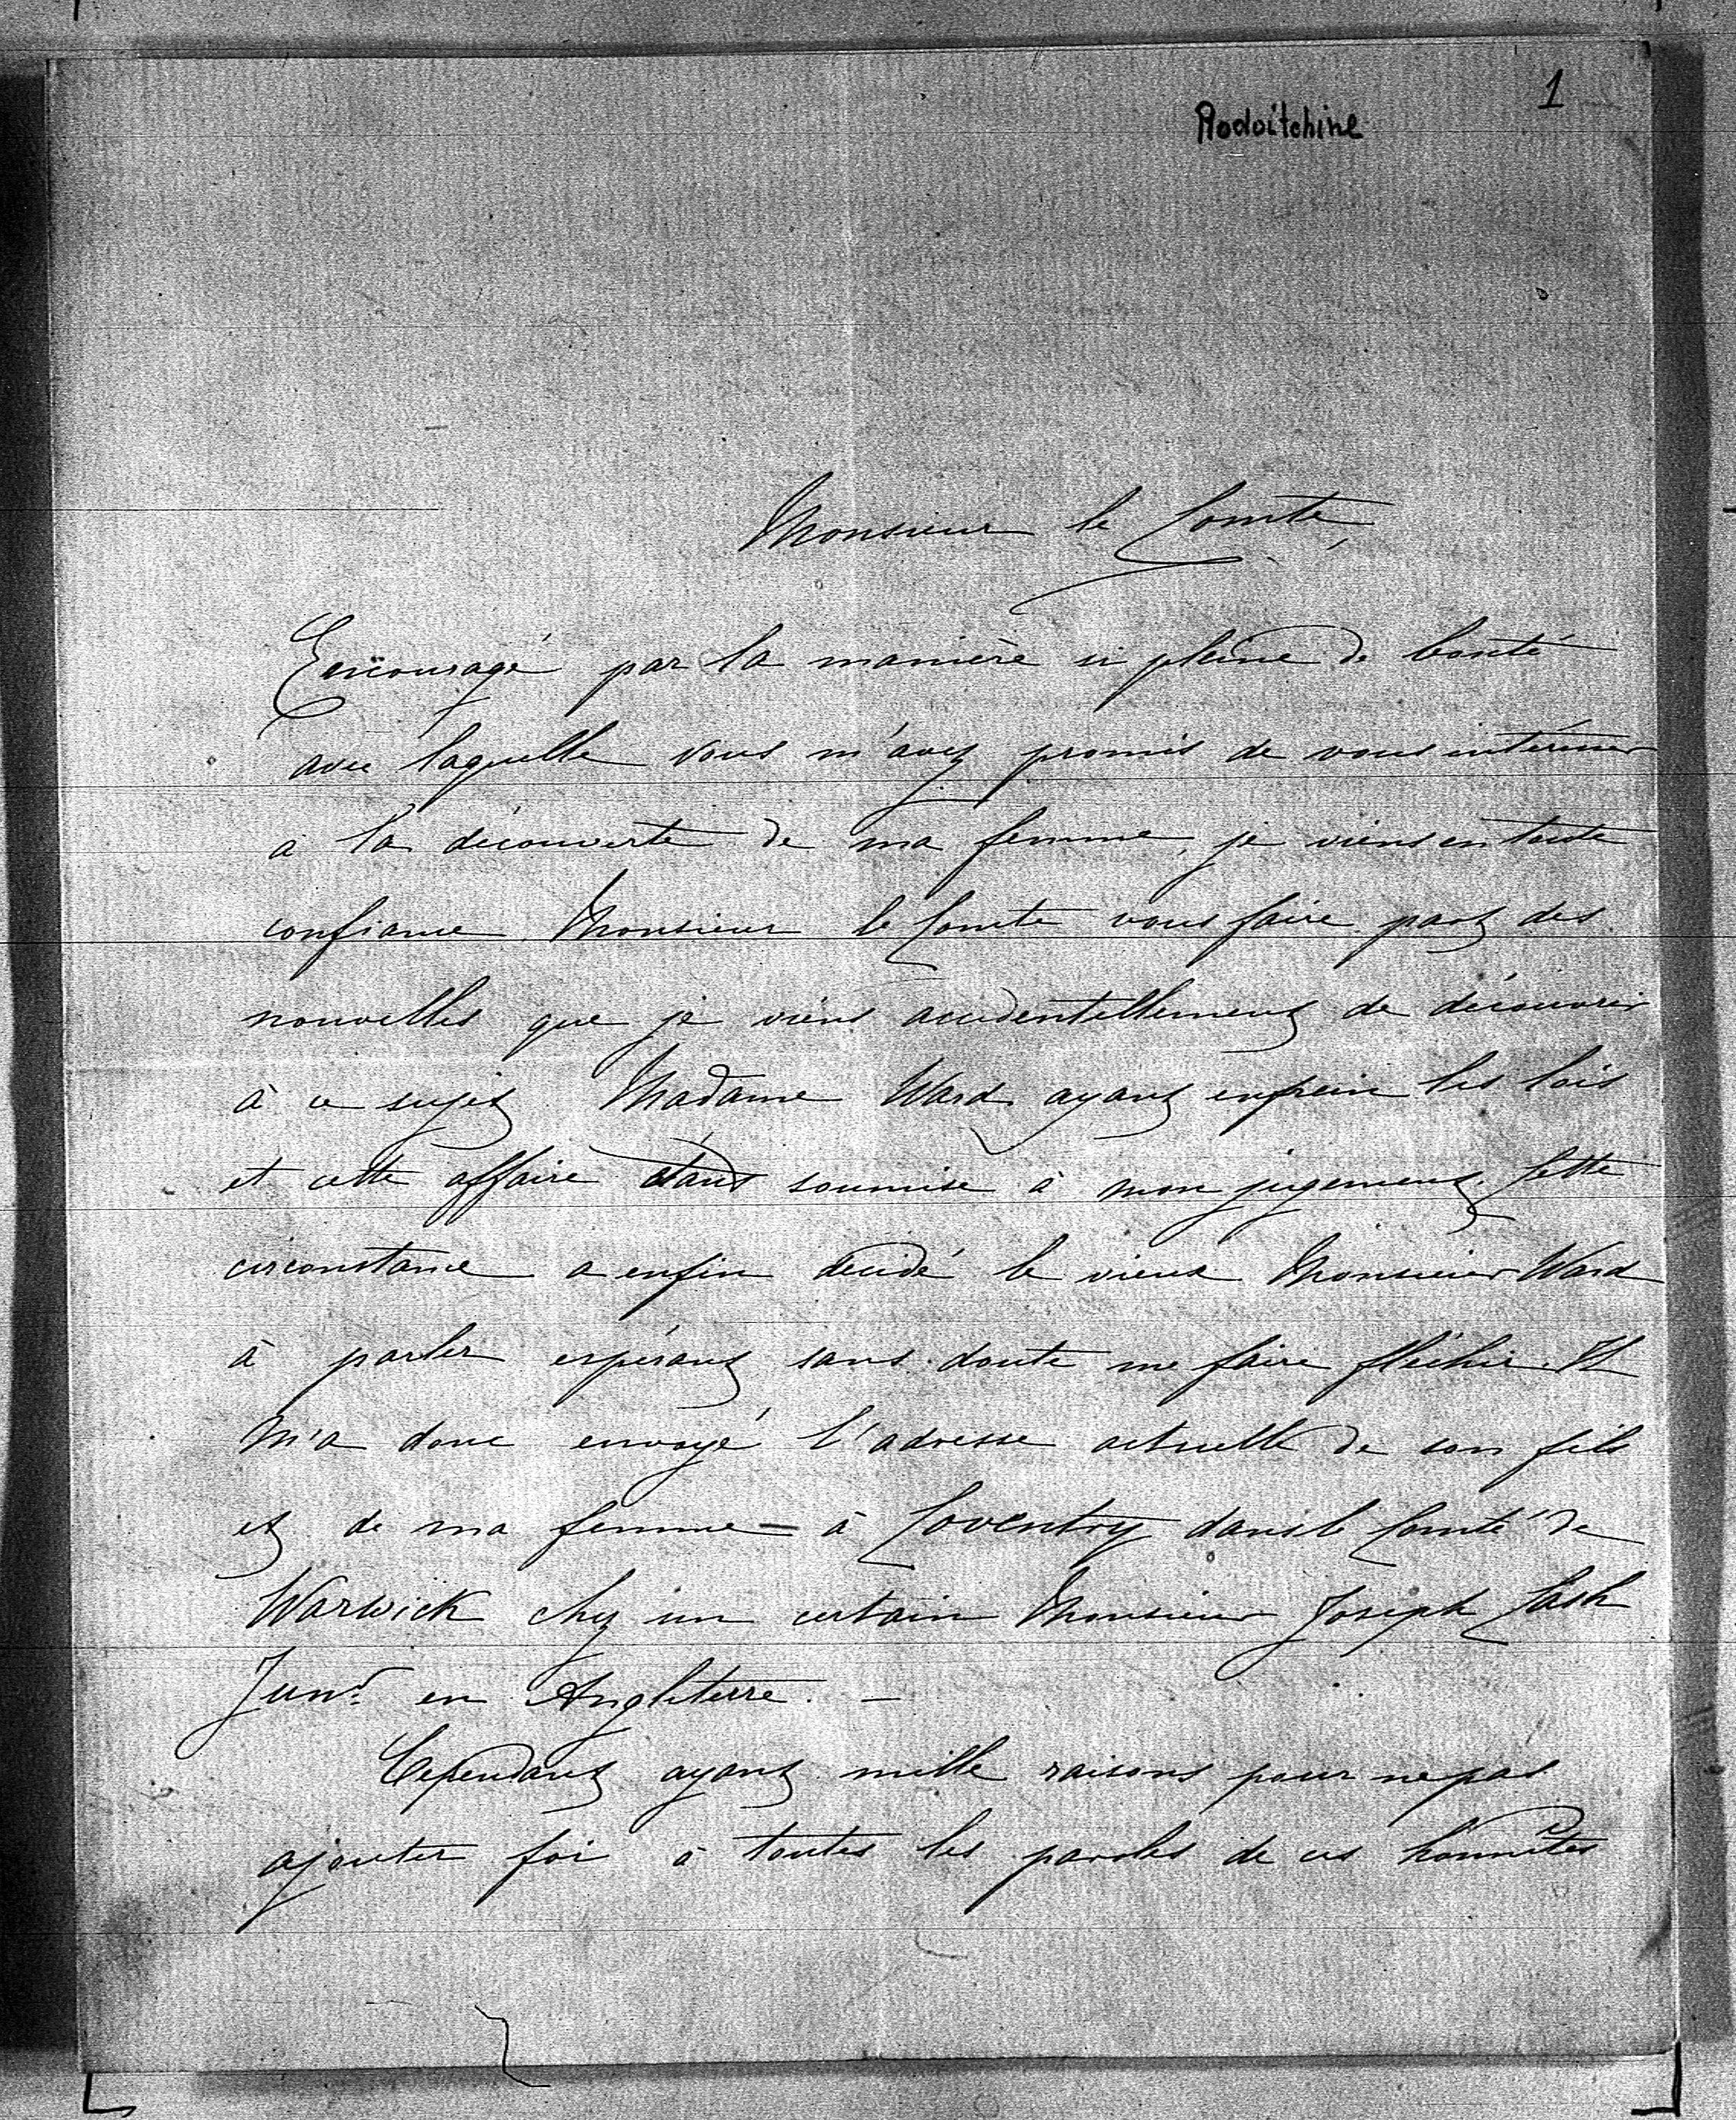 1
Rodoitchine
Monsieur le Comte,
Encouragé par la manière si pleine de bonté
avec laquelle vous m'avez promis de vous intéresser
a la découverte de ma femme, je viens en toute
confiance Monsieur le Comte vous faire part des
nouvelles que je viens accidentellement de découvrir
à ce sujet Madame Ward ayant enfrein les lois
et cette affaire étant soumise à mon jugement. Cette
circonstance a enfin décidé le vieux Monsieur Ward
à parler espérant sans doute me faire fléchir. Il
m'a donc envoyé l'adresse actuelle de son fils
et de ma femme = à Coventry dans le Comté de
Warwick chez un certain Monsieur Joseph Cash
Junr. en Angleterre. —
Cependant ayant mille raisons pour ne pas
ajouter foi à toutes les paroles de ces honnêtes